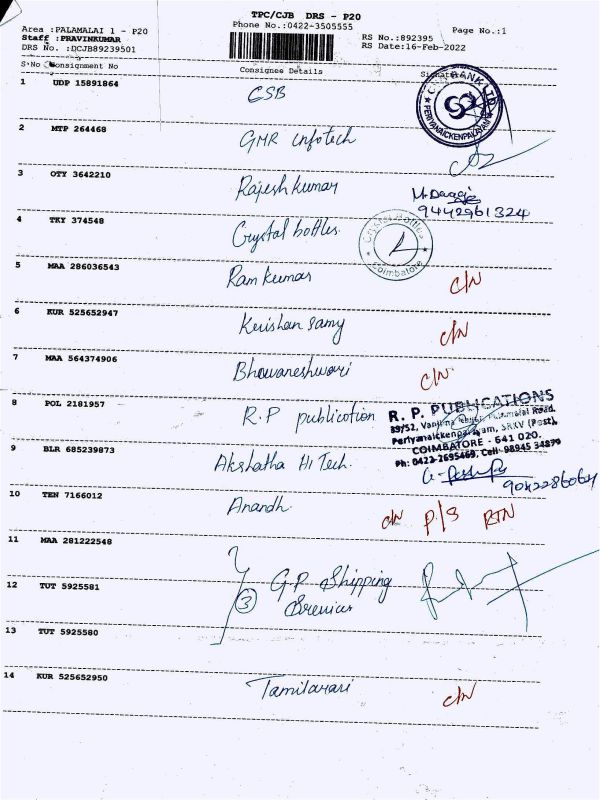 TPC/CJB DRS - P20
Phone No.:0422-3505555
Area :PALAMALAI 1 - P20
Staff :PRAVINKUMAR
DRS No. :DCJB89239501
RS No.:892395
RS Date:16-Feb-2022
Page No.:1
S.No Consignment No Consignee Details
1 UDP 15891864 CSB
BANK LTD
PERIYANAICKENPALAYAM
2 MTP 264468 GMR infotech
3 OTY 3642210 Rajesh kumar
9442961324
4 TKY 374548 Crystal bottles
Crystal Bottles
Coimbatore
5 MAA 286036543 Ram kumar C/N
6 KUR 525652947 Krishan Samy C/N
7 MAA 564374906 Bhuwaneshwari C/N
8 POL 2181957 R.P publication
R. P. PUBLICATIONS
89/52, Road,
Periyanaickenpalayam, SRKV (Post),
COIMBATORE - 641 020.
Ph: 0422-2695469, Cell: 98945 34879
9 BLR 685239873 Akshatha Hi Tech.
10 TEN 7166012 Anandh C/N P/S RTN
11 MAA 281222548
12 TUT 5925581 3 G.P. Shipping
13 TUT 5925580
14 KUR 525652950 Tamilarasi C/N